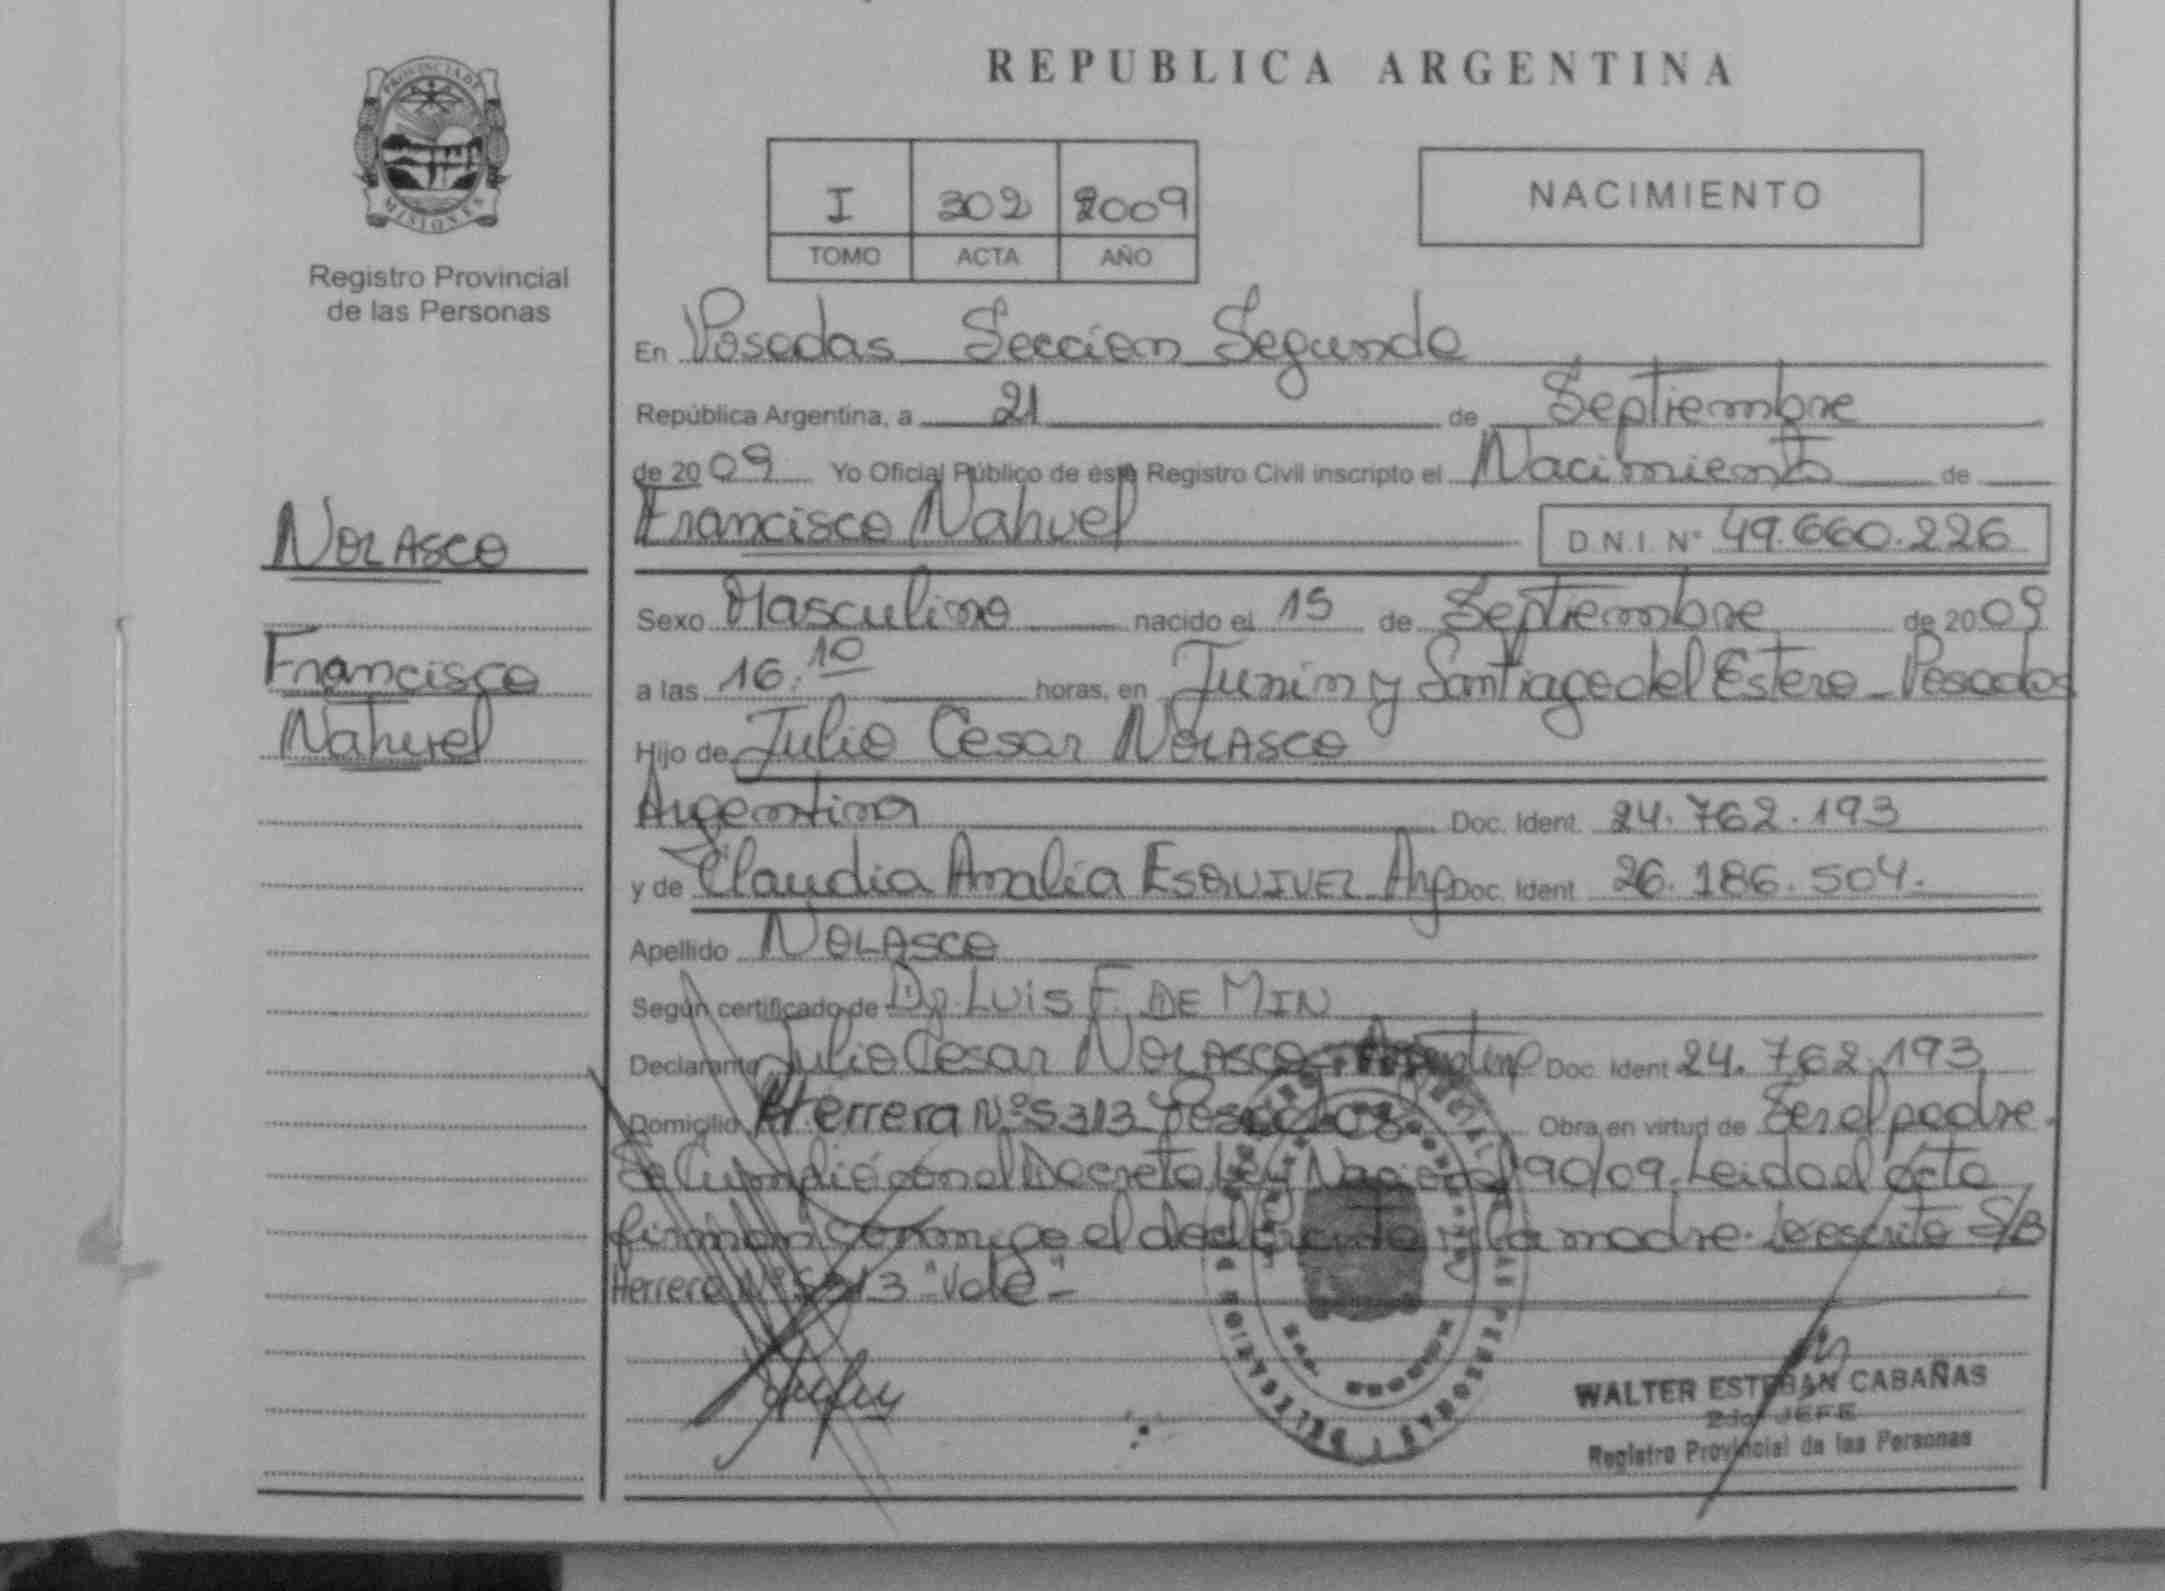 REPUBLICA ARGENTINA
PROVINCIA DE
MISIONES
Registro Provincial
de las Personas
I 302 2009
TOMO ACTA AÑO
NACIMIENTO
En Posadas Seccion Segunda
República Argentina, a 21 de Septiembre
de 2009 Yo Oficial Público de este Registro Civil inscripto el Nacimiento de
NOLASCO
Francisco
Nahuel
Francisco Nahuel D.N.I. N° 49.660.226
Sexo Masculino nacido el 15 de Septiembre de 2009
a las 16:10 horas, en Junin y Santiago del Estero - Posadas
Hijo de Julio Cesar NOLASCO
Argentina Doc. Ident. 24.762.193
y de Claudia Amalia ESQUIVEL Arg Doc. Ident. 26.186.504.
Apellido NOLASCO
Según certificado de Dr. LUIS F. DE MIN
Declarante Julio Cesar NOLASCO Doc. Ident 24.762.193
Domicilio Herrera N° 5313 Posadas Obra en virtud de Ser el padre.
Se Cumplió con el Decreto Ley Nacional 90/09. Leida el acta
firman conmigo el declarante y la madre. Lo escrito S/B
Herrera N° 5313 "Vale" -
WALTER ESTEBAN CABAÑAS
2do JEFE
Registro Provincial de las Personas